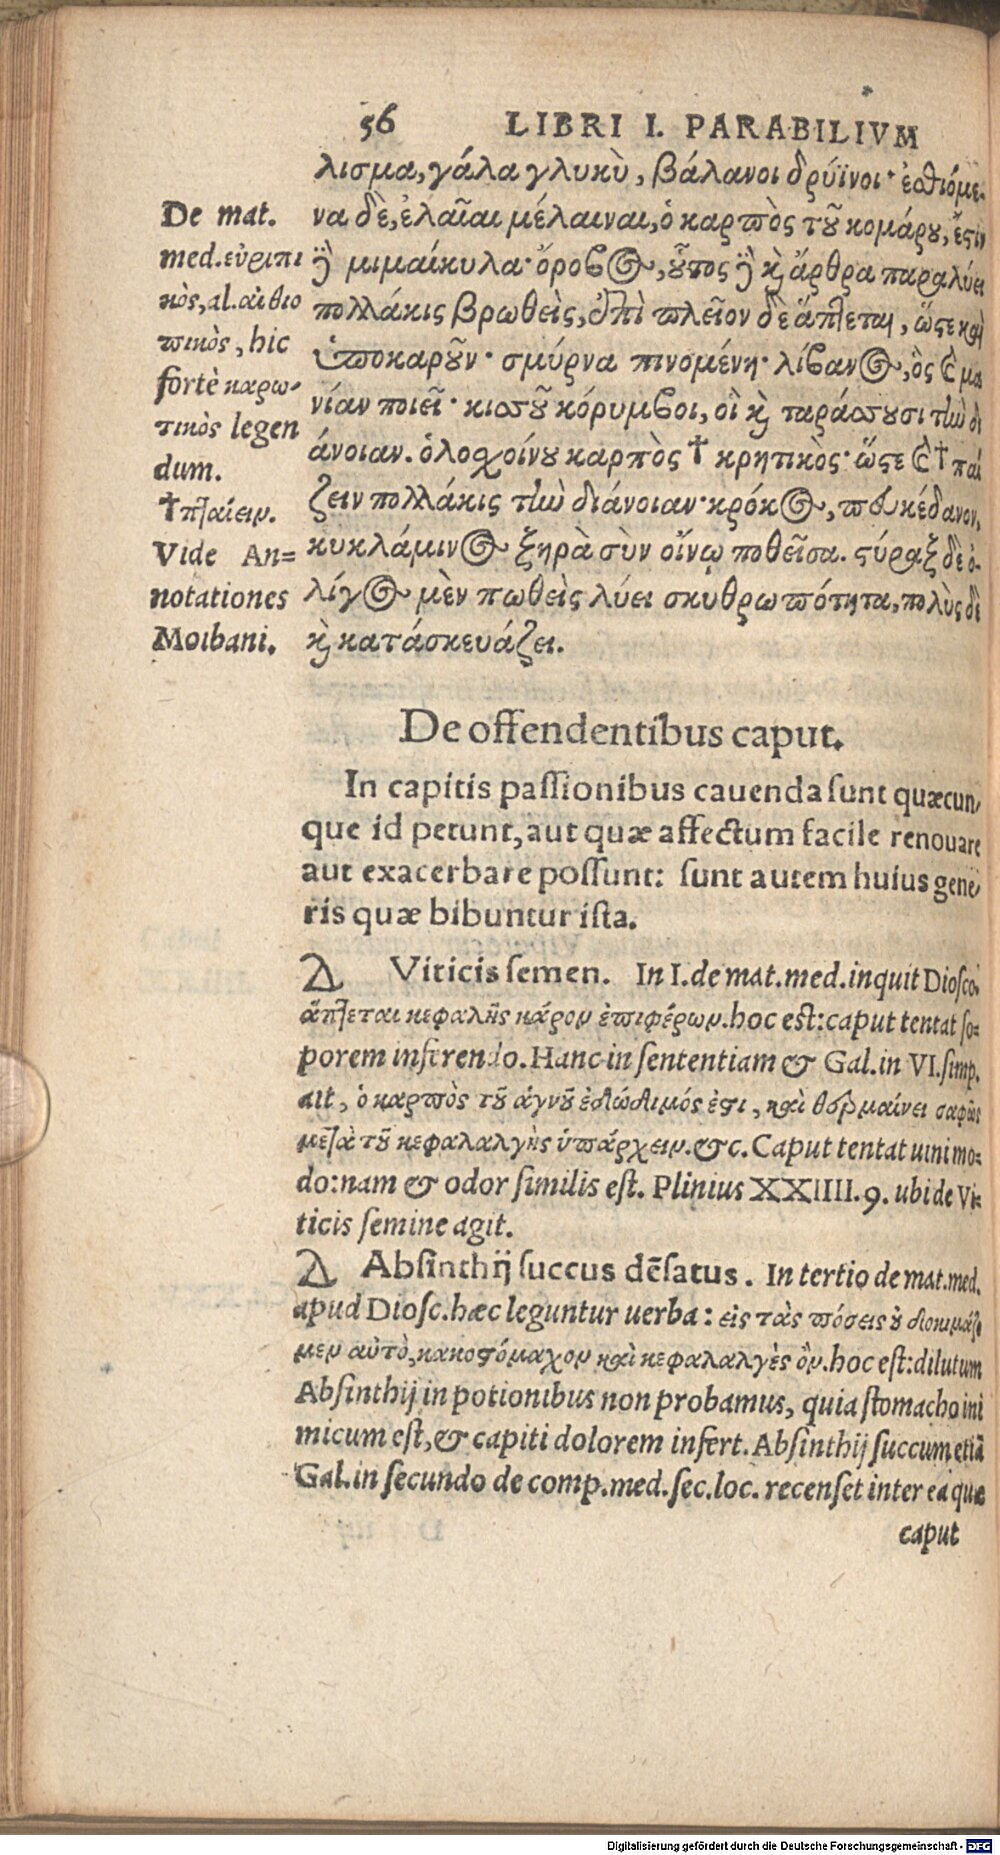 56 LIBRI I. PARABILIVM
λισμα, γάλα γλυκὺ, βάλανοι δρύϊνοι· ἐσθιόμε-
να δὲ, ἐλαῖαι μέλαιναι, ὁ καρπὸς τοῦ κομάρου, ἔστιν
ἢ μιμαίκυλα· ὄροβος, οὗτος ἢ καὶ ἄρθρα παραλύει
πολλάκις βρωθεὶς, ἐπὶ πλεῖον δὲ ἅπτεται, ὥστε καὶ
ὑποκαροῦν· σμύρνα πινομένη· λίβανος, ὃς καὶ μα
νίαν ποιεῖ· κισσοῦ κόρυμβοι, οἳ καὶ ταράσσουσι τὴν δι
άνοιαν. ὁλοσχοίνου καρπὸς † κρητικὸς· ὥστε καὶ † παί
ζειν πολλάκις τὴν διάνοιαν· κρόκος, πευκέδανον,
κυκλάμινος ξηρὰ σὺν οἴνῳ ποθεῖσα. στύραξ δὲ ὀ-
λίγος μὲν πωθεὶς λύει σκυθρωπότητα, πολὺς δὲ
καὶ κατάσκευάζει.
De mat.
med. εὐριπι
κὸς, al. αἰθιο
πικὸς, hic
fortè καρω-
τικὸς legen
dum.
† πταίειν.
Vide An=
notationes
Moibani.
De offendentibus caput.
In capitis passionibus cauenda sunt quæcun-
que id petunt, aut quæ affectum facile renouare
aut exacerbare possunt: sunt autem huius gene-
ris quæ bibuntur ista.
Δ Viticis semen. In I. de mat. med. inquit Diosco.
ἅπτεται κεφαλῆς κάρον ἐπιφέρων. hoc est: caput tentat so=
porem inferendo. Hanc in sententiam & Gal. in VI. simp.
ait, ὁ καρπὸς τοῦ ἁγνοῦ ἐδώδιμός ἐστι, καὶ θερμαίνει σαφῶς
μετὰ τοῦ κεφαλαλγὴς ὑπάρχειν. &c. Caput tentat uini mo=
do: nam & odor similis est. Plinius XXIIII. 9. ubi de Vi=
ticis semine agit.
Δ Absinthij succus dēsatus. In tertio de mat. med.
apud Diosc. hæc leguntur uerba: εἰς τὰς πόσεις οὐ δοκιμάζο
μεν αὐτὸ, κακοστόμαχον καὶ κεφαλαλγὲς ὂν. hoc est: dilutum
Absinthij in potionibus non probamus, quia stomacho ini
micum est, & capiti dolorem infert. Absinthij succum etiā
Gal. in secundo de comp. med. sec. loc. recenset inter ea quæ
caput
Digitalisierung gefördert durch die Deutsche Forschungsgemeinschaft - DFG